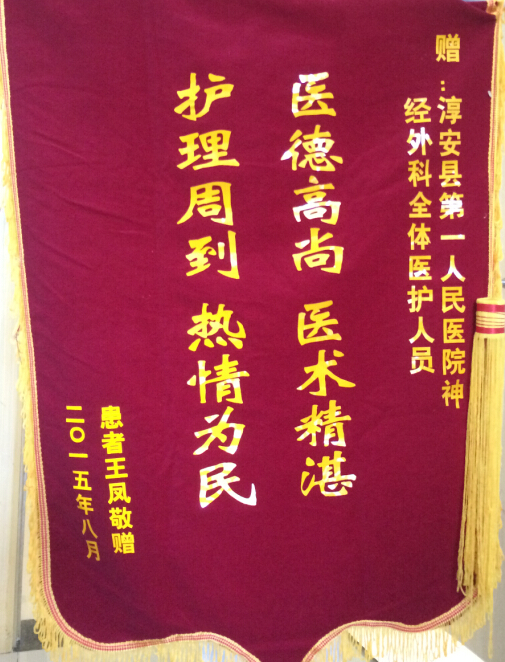 赠：淳安县第一人民医院神
经外科全体医护人员
医德高尚 医术精湛
护理周到 热情为民
患者王凤敬赠
二〇一五年八月